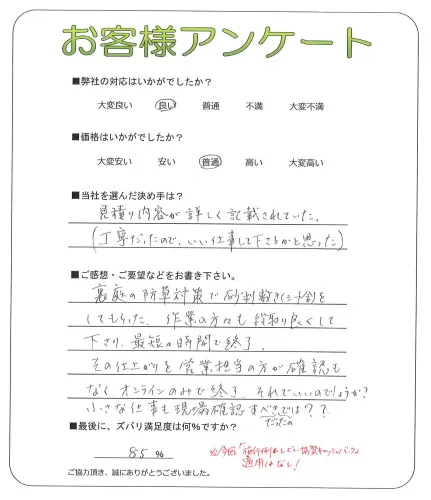 お客様アンケート
■弊社の対応はいかがでしたか?
大変良い 良い 普通 不満 大変不満
■価格はいかがでしたか?
大変安い 安い 普通 高い 大変高い
■当社を選んだ決め手は?
見積り内容が詳しく記載されていた。
(丁寧だったので、いい仕事して下さるかと思った)
■ご感想・ご要望などをお書き下さい。
裏庭の防草対策で砂利敷き(シート含)を
してもらった。作業の方々も段取り良くして
下さり、最短の時間で終了。
その仕上がりを営業担当の方が確認も
なくオンラインのみで終了。それでいいのでしょうか?
小さな仕事も現場確認すべきでは??
だったの
■最後に、ズバリ満足度は何%ですか?
85 %
※今回「施行例&レビュー協賛キャッシュバック」
適用はなし!
ご協力頂き、誠にありがとうございました。